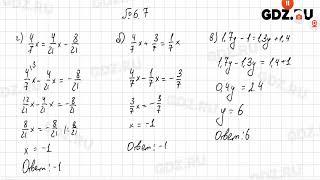 GDZ.RU
№6.7
а) 4/7x = 4/21x - 8/21
4/7x - 4/21x = -8/21
12/21x - 4/21x = -8/21
8/21x = -8/21 |: 8/21
x = -1
Ответ: -1
б) 4/7x + 3/7 = 1/7x
4/7x - 1/7x = -3/7
3/7x = -3/7
x = -1
Ответ: -1
в) 1,7y - 1 = 1,3y + 1,4
1,7y - 1,3y = 1,4+1
0,4y = 2,4
y = 6
Ответ: 6
GDZ.RU